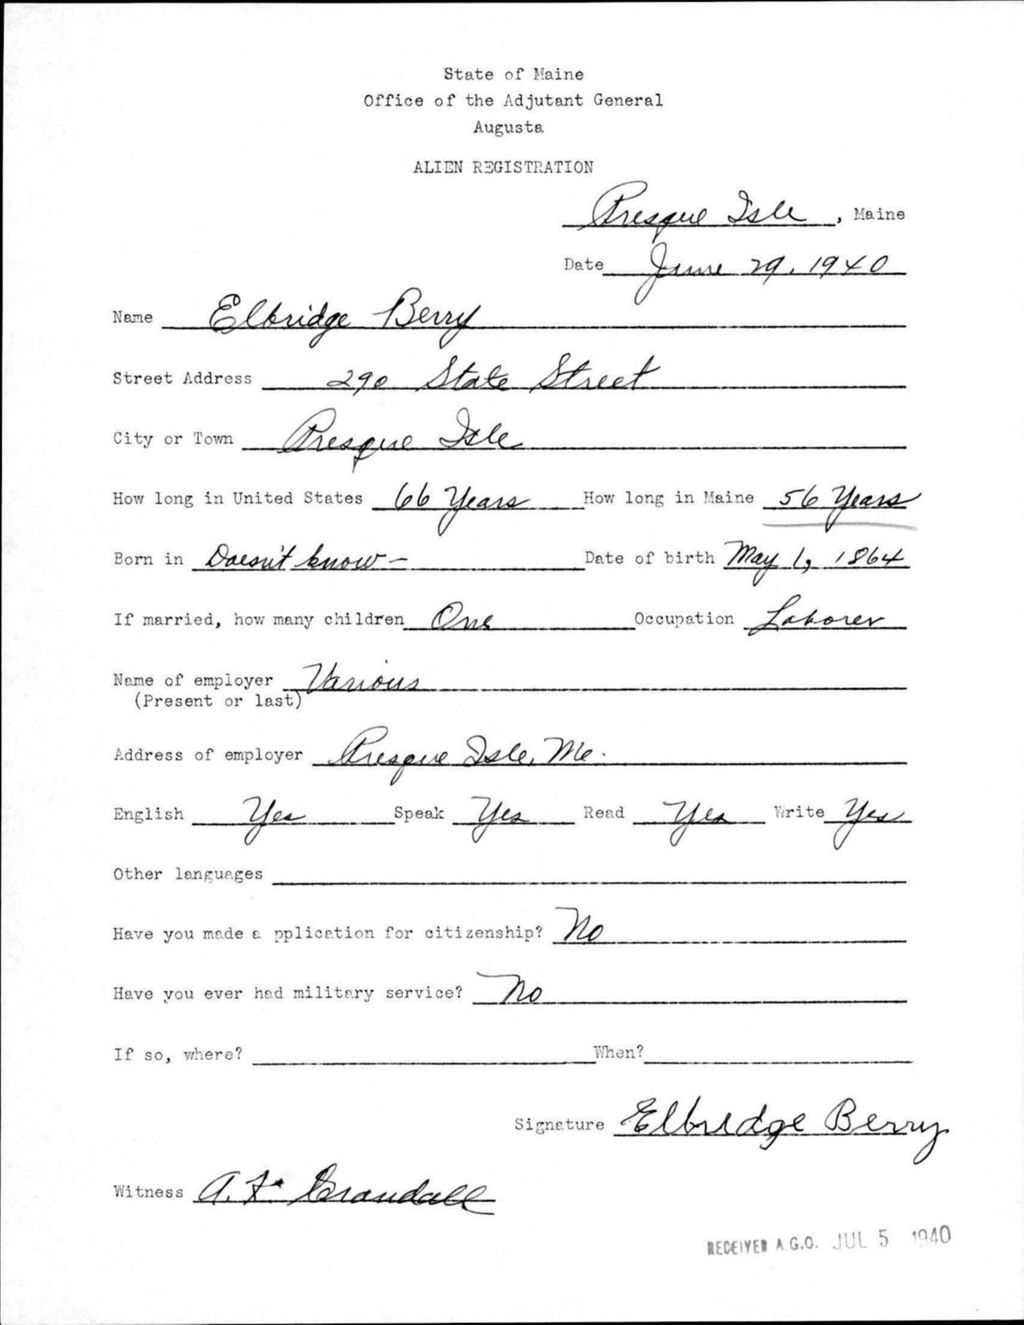 State of Maine
Office of the Adjutant General
Augusta
ALIEN REGISTRATION
Presque Isle, Maine
Date June 29, 1940
Name Elbridge Berry
Street Address 290 State Street
City or Town Presque Isle
How long in United States 66 Years How long in Maine 56 Years
Born in Doesn't know - Date of birth May 1, 1864
If married, how many children One Occupation Laborer
Name of employer Various
(Present or last)
Address of employer Presque Isle, Me.
English Yes Speak Yes Read Yes Write Yes
Other languages
Have you made a pplication for citizenship? No
Have you ever had military service? No
If so, where? When?
Signature Elbridge Berry
Witness A. F. Crandall
RECEIVED A.G.O. JUL 5 1940